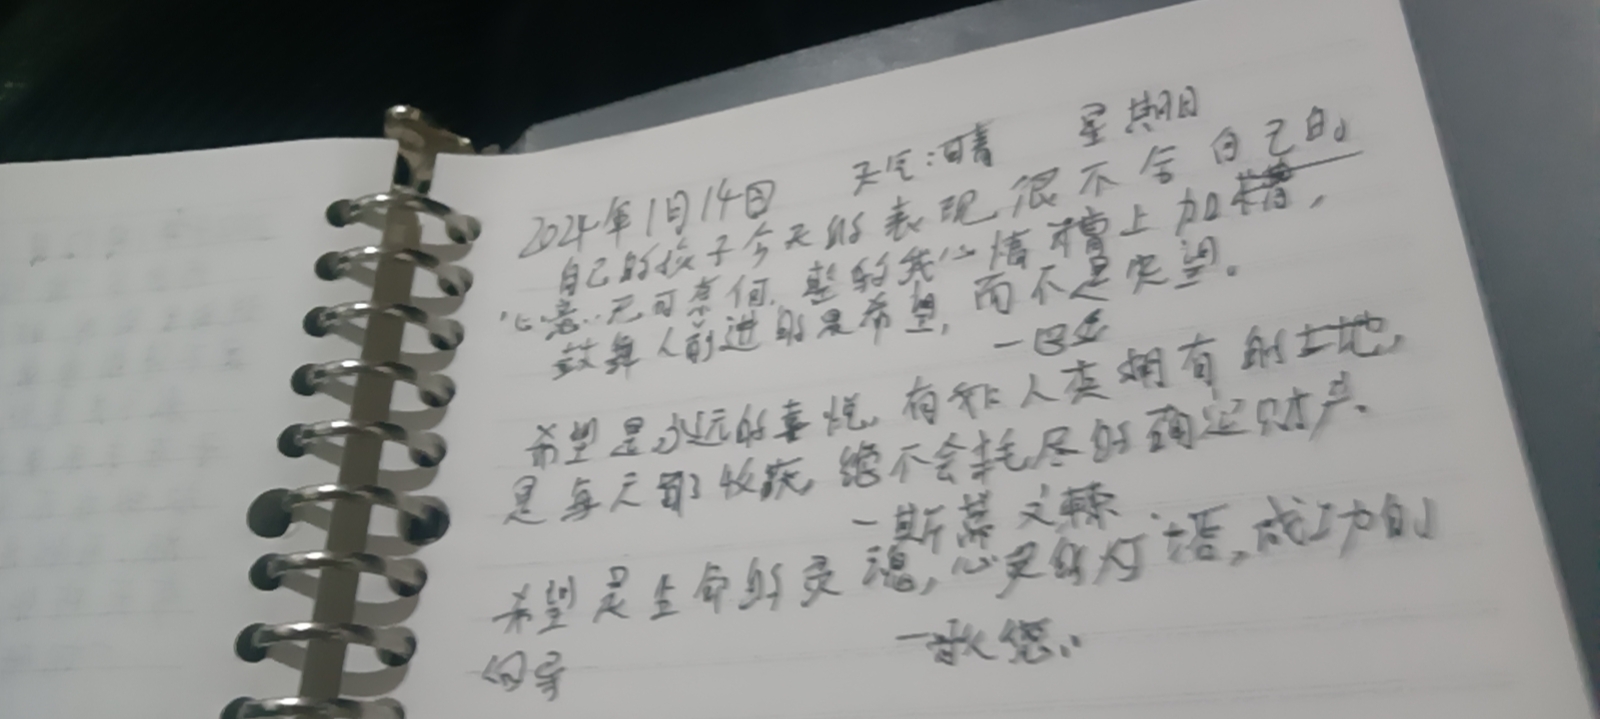 2024年1月14日 天气:晴 星期日
自己的孩子今天的表现很不合自己的
心意..无可奈何.惹的我心情糟上加糟,
鼓舞人前进的是希望,而不是失望。
一巴金
希望是永远的喜悦,有如人类拥有的土地,
是每天都收获,绝不会耗尽的确定财产.
一斯蒂文森
希望是生命的灵魂,心灵的灯塔,成功的
向导
一歌德..